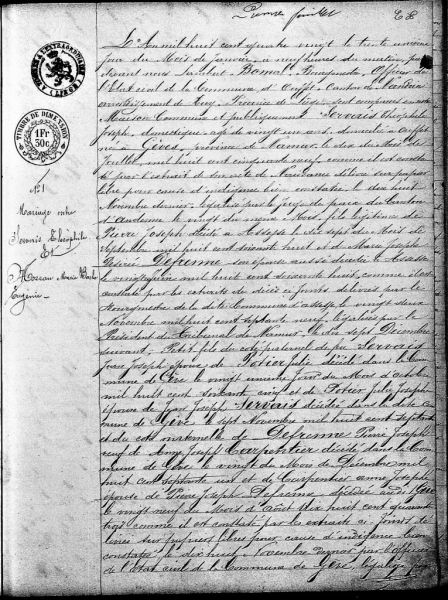 Premier feuillet
L'An mil huit cent quatre vingt le trente unième
jour du Mois de Janvier, à neuf heures du matin, par
devant nous Lambert Bomal, Bourgmestre, Officier de
l'Etat civil de la Commune d'Ouffet, Canton de Nandrin
arrondissement de Huy, Province de Liège, sont comparus en notre
Maison Commune et publiquement Servais Théophile
Joseph, domestique, agé de vingt un ans, domicilié à Ouffet
né à Gives, province de Namur, le dix du Mois de
mil huit cent cinquante neuf comme il est constaté
par l'extrait de son acte de Naissance délivré sur papier
libre pour cause d'indigence bien constatée le dix huit
Novembre dernier, légalisé par le juge de paix du Canton
d'Andenne le vingt du même Mois, fils légitime de
Pierre Joseph décédé à Assesse le dix sept du Mois de
Septembre mil huit cent soixante huit et de Marie Joseph
Defrenne son épouse aussi décédée à Assesse
le mil huit cent soixante huit, comme il est
constaté par les extraits de décès ci joints délivrés par le
Bourgmestre de la dite Commune d'Assesse le vingt deux
Novembre mil huit cent septante neuf, légalisés par le
Président du Tribunal de Namur le dix sept Décembre
suivant, Petit fils du côté paternel de feu Servais
Jean Joseph époux de Potier Julie décédé dans la Com
mune de Gève le vingt unième Jour du Mois d'octobre
mil huit cent soixante cinq et de Potier Julie Joseph
épouse de Jean Joseph Servais décédée dans la dite Com
mune de Gève le sept Novembre mil huit cent septante
et du côté maternelle de Defrenne Pierre Joseph
veuf de Anne Joseph Carpentier décédé dans la Com
mune de Gève le vingt du Mois de Décembre mil
huit cent septante un et de Carpentier anne Joseph
épouse de Pierre Joseph Defrenne décédée au dit Gève
le vingt neuf du Mois d'Août mil huit cent quarante
trois comme il est constaté par les extraits ci joints dé
livrés sur papiers libres pour cause d'indigence bien
constatée le dix huit Novembre dernier par l'officier
de l'Etat civil de la Commune de Gève, légalisés par
TIMBRE DE DIMENSION
1 Fr
30c
N° 1
Mariage entre
Servais Théophile
Et
Eugénie